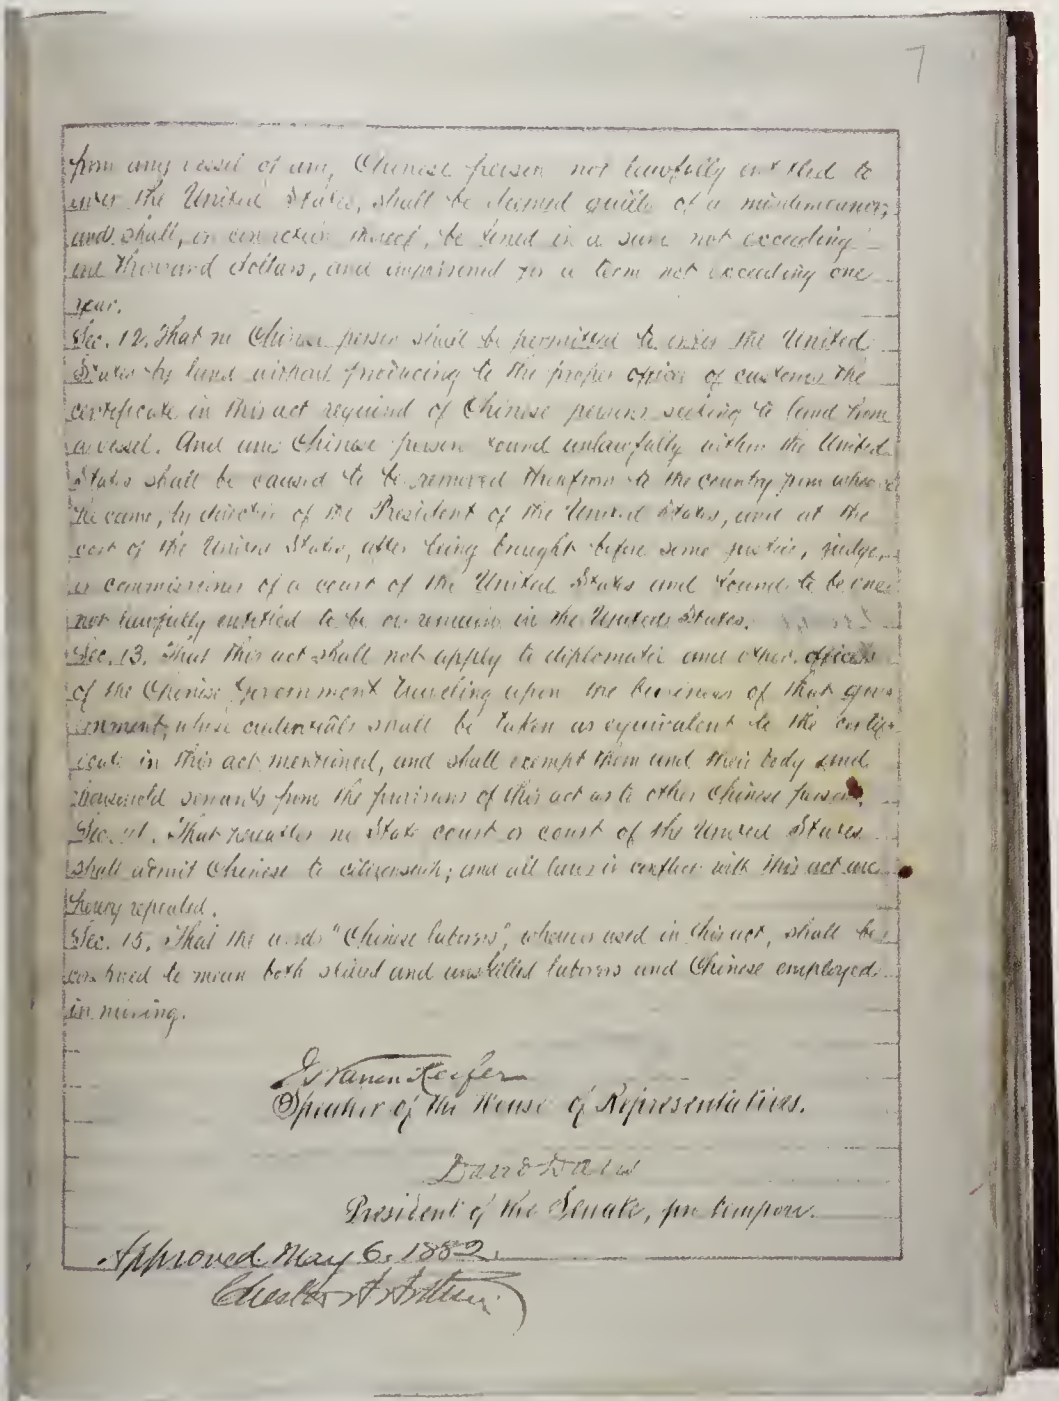 7
from any vessel of any Chinese person not lawfully entitled to
enter the United States, shall be deemed guilty of a misdemeanor,
and shall, on conviction thereof, be fined in a sum not exceeding
one thousand dollars, and imprisoned for a term not exceeding one
year.
Sec. 12. That no Chinese person shall be permitted to enter the United
States by land without producing to the proper officer of customs the
certificate in this act required of Chinese persons seeking to land from
a vessel. And any Chinese person found unlawfully within the United
States shall be caused to be removed therefrom to the country from whence
he came, by direction of the President of the United States, and at the
cost of the United States, after being brought before some justice, judge,
or commissioner of a court of the United States and found to be one
not lawfully entitled to be or remain in the United States.
Sec. 13. That this act shall not apply to diplomatic and other officers
of the Chinese Government traveling upon the business of that gov-
ernment, whose credentials shall be taken as equivalent to the certifi-
cate in this act mentioned, and shall exempt them and their body and
household servants from the provisions of this act as to other Chinese persons.
Sec. 14. That hereafter no State court or court of the United States
shall admit Chinese to citizenship; and all laws in conflict with this act are
hereby repealed.
Sec. 15. That the words "Chinese laborers", wherever used in this act, shall be
construed to mean both skilled and unskilled laborers and Chinese employed
in mining.
J Warren Keifer
Speaker of the House of Representatives.
David Davis
President of the Senate, pro tempore.
Approved May 6, 1882.
Chester A Arthur